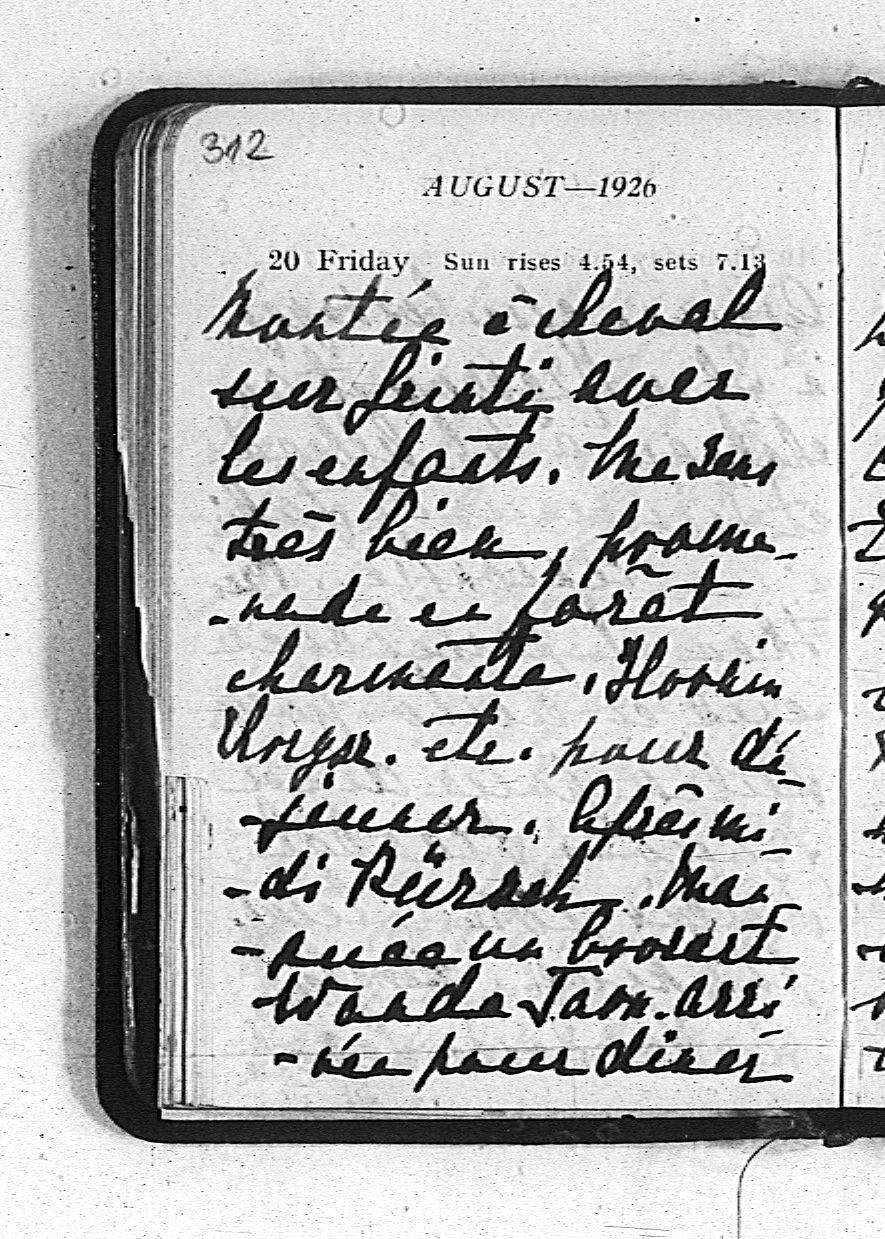 312
AUGUST—1926
20 Friday Sun rises 4.54, sets 7.13
Montée à cheval
sur avec
les enfants. Me sens
très bien, prome-
-nade en forêt
charmante,
etc. pour dé-
-jeuner. Après mi-
-di Pürsch. Man-
-quée un
Wanda Tarn. arri-
-vée pour diner